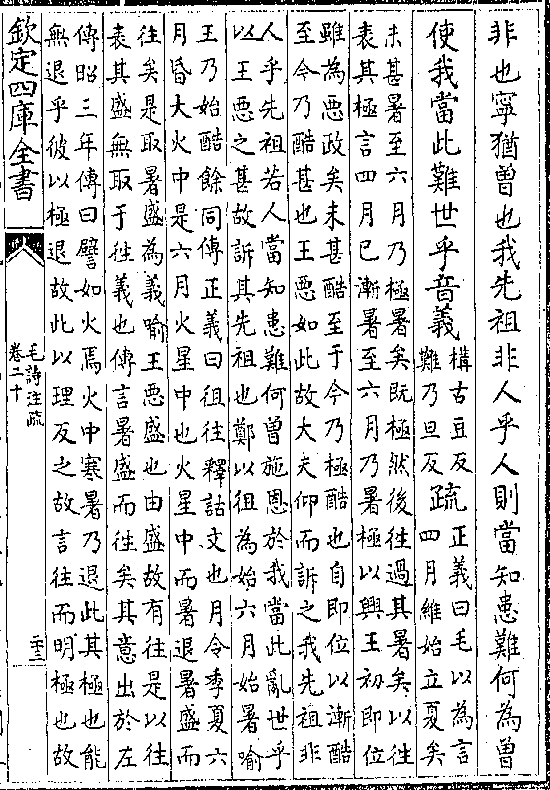 非也寧猶曾也我先祖非人乎人則當知患難何為曾
使我當此難世乎音義
構古豆反
難乃旦反
疏
正義曰毛以為言
四月維始立夏矣
未甚暑至六月乃極暑矣既極然後往過其暑矣以往
表其極言四月已漸暑至六月乃暑極以興王初即位
雖為惡政矣未甚酷至于今乃極酷也自即位以漸酷
至今乃酷甚也王惡如此故大夫仰而訴之我先祖非
人乎先祖若人當知患難何曾施恩於我當此亂世乎
以王惡之甚故訴其先祖也鄭以徂為始六月始暑喻
王乃始酷餘同傳正義曰徂往釋詁文也月令季夏六
月昏大火中是六月火星中也火星中而暑退暑盛而
往矣是取暑盛為義喻王惡盛也由盛故有往是以往
表其盛無取于往義也傳言暑盛而往矣其意出於左
傳昭三年傳曰譬如火焉火中寒暑乃退此其極也能
無退乎彼以極退故此以理反之故言往而明極也故
欽定四庫全書
毛詩注疏
卷二十